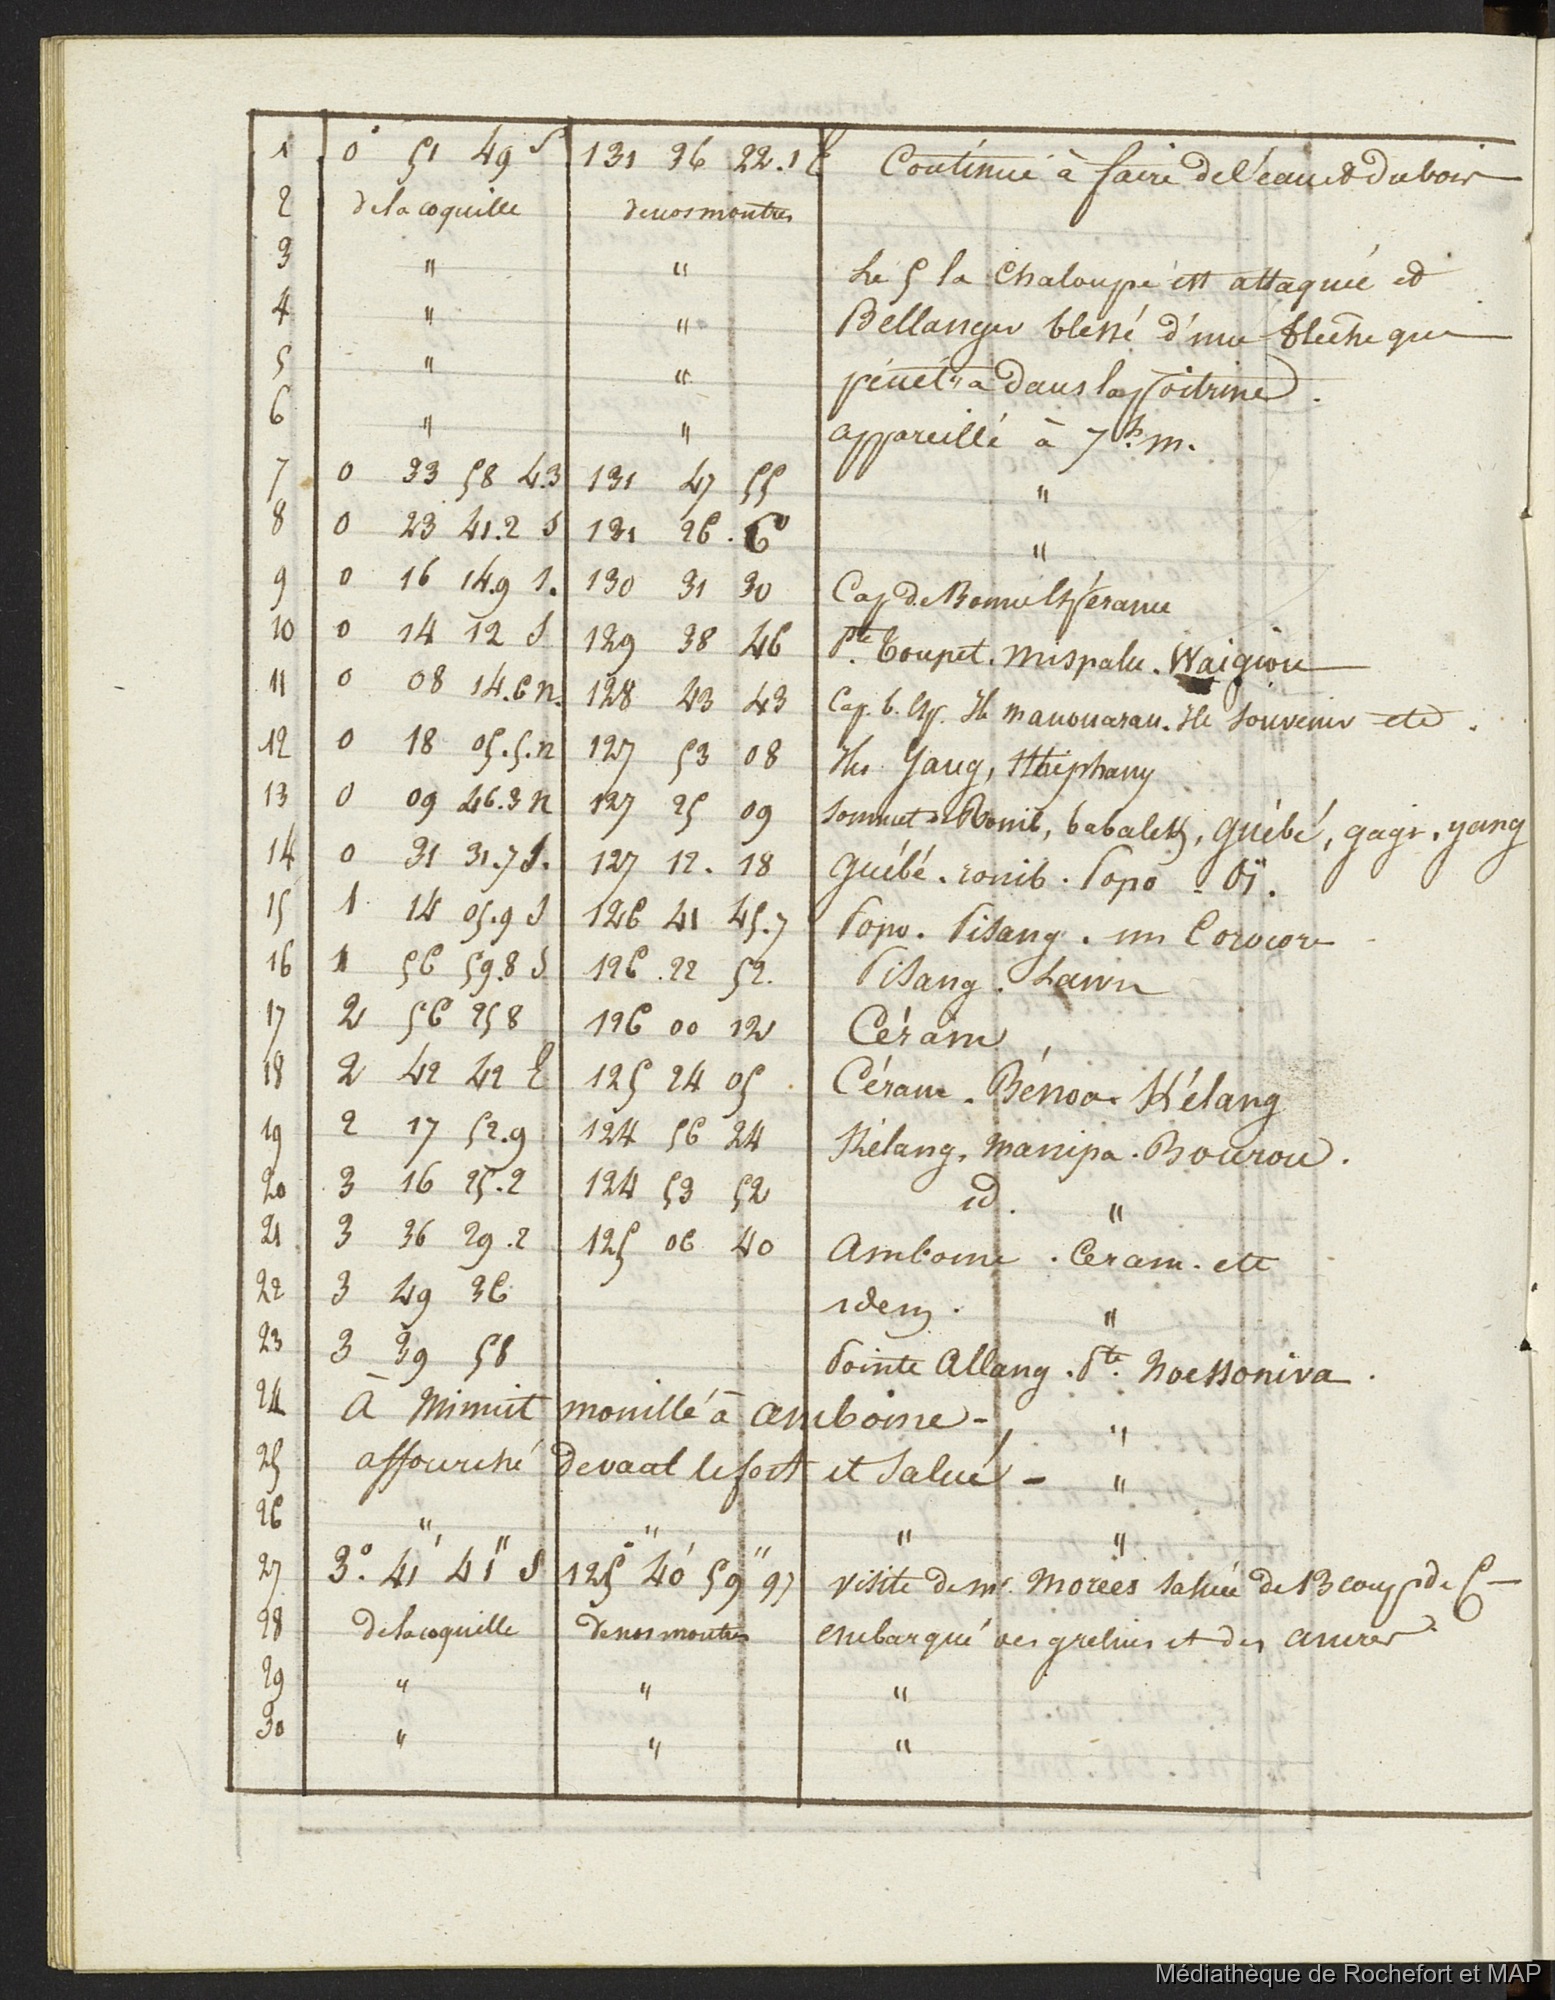 1 0° 51 49 S 131 36 22.1 E Continué à faire de l'eau et du bois
2 de la coquille de nos montres
3 " " Le 5 la Chaloupe est attaquée et
4 " " Bellanger blessé d'une fleche qui
5 " " pénétra dans la poitrine.
6 " " appareillé à 7h. m.
7 0 33 58 43 131 47 55 "
8 0 23 41.2 S 131 26. "
9 0 16 14.9 S. 130 31 30 Cap de Bonne Espérance
10 0 14 12 S 129 38 46 Pte. Toupet. mispalu. Waigiou
11 0 08 14.6 n. 128 43 43 Cap. b. Esp. Ile manouaran. Ile Souvenir etc.
12 0 18 05.5.n 127 53 08 Iles Yang, Steiphany
13 0 09 46.3 n 127 25 09 Sommet de Ronib, babalek, Guébé, gagi, yang
14 0 31 31.7 S. 127 12. 18 Guébé. ronib. Popo - Oï.
15 1 14 05.9 S 126 41 45.7 Popo. Pisang. un Corocore
16 1 56 59.8 S 126.22 52. Pisang. Lawn
17 2 56 25 8 126 00 12 Céram
18 2 42 42 E 125 24 05 Céram. Bénoa. Kélang
19 2 17 52.9 124 56 24 Kélang, Manipa. Bourou.
20 3 16 25.2 124 53 52 id. "
21 3 36 29.2 125 06 40 Amboine. Ceram. etc
22 3 49 36 idem. "
23 3 39 58 Pointe Allang. Pte. Noessoniva.
24 à Minuit mouillé à amboine - "
25 affourché devant le fort et Salué - "
26 " " " "
27 3°. 41' 41" S 125° 40' 59" 97 visite de mr. Morées Saluée de 13 coups de C
28 de la coquille de nos montres embarqué des grelins et des ancres
29 " " "
30 " " "
Médiathèque de Rochefort et MAP